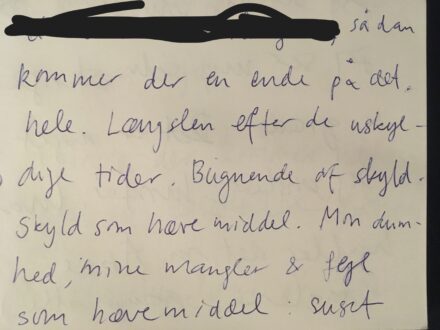 , så dan
kommer der en ende på det
hele. Længslen efter de uskyl-
dige tider. Bugnende af skyld.
Skyld som hævemiddel. Mon dum-
hed, mine mangler & fejl
som hævemiddel : suset